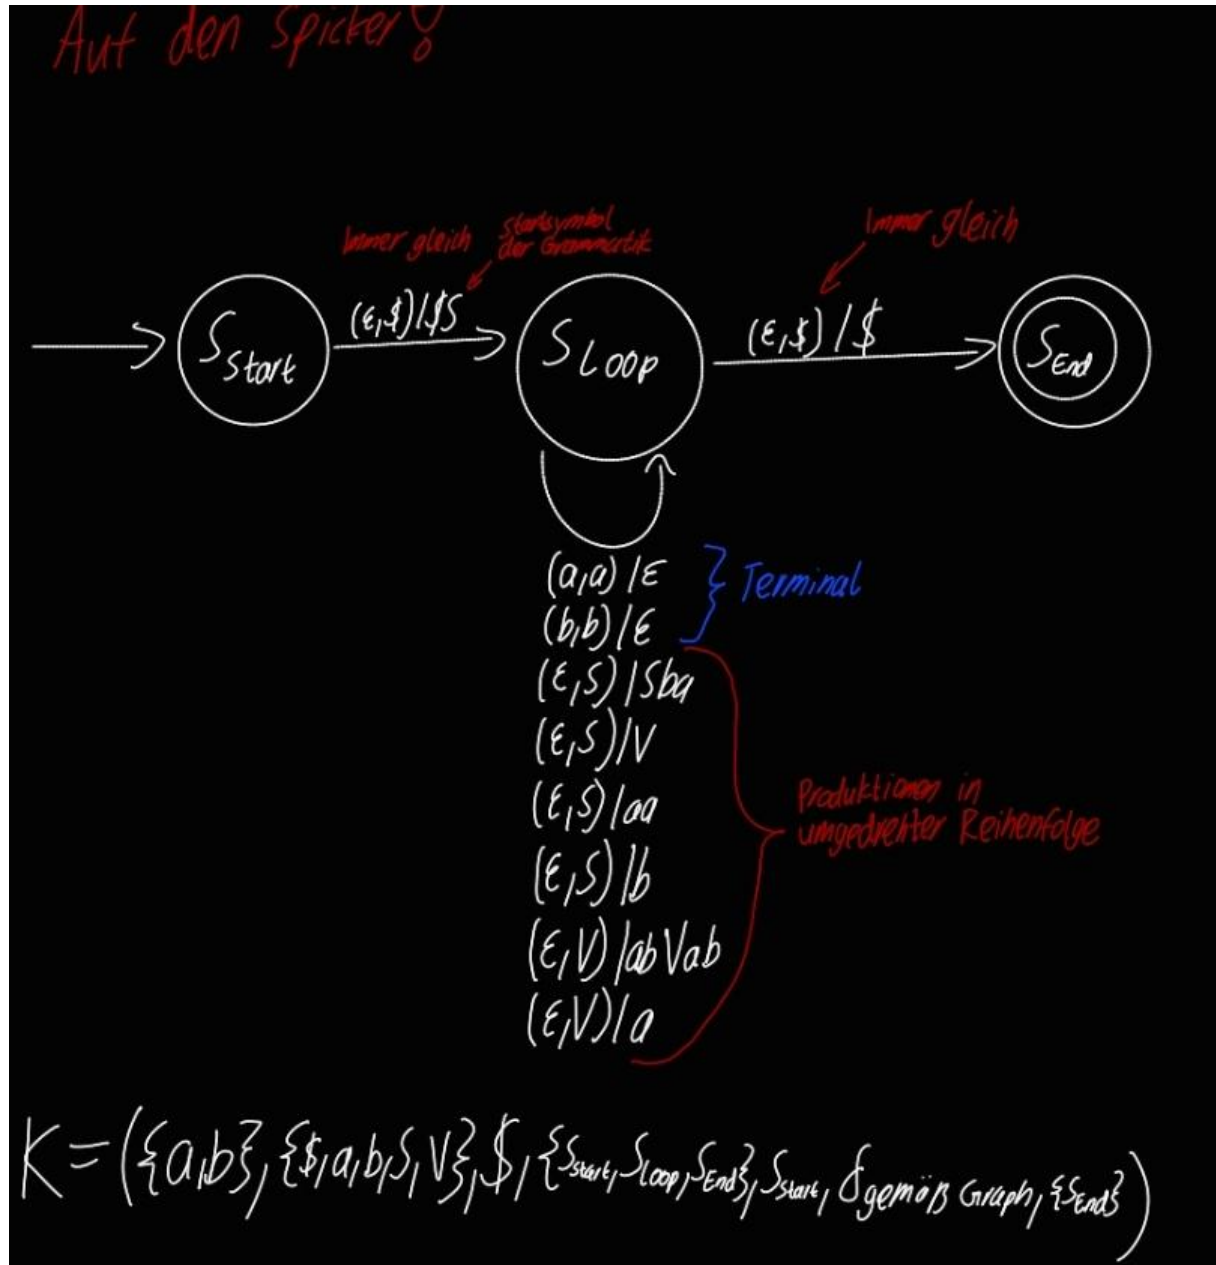 Auf den Spicker!
Immer gleich
Startsymbol
der Grammatik
Immer gleich
S_Start
(ε,$)/$S
S_Loop
(ε,$)/$
S_End
(a,a)/ε
(b,b)/ε
Terminal
(ε,S)/Sba
(ε,S)/V
(ε,S)/aa
(ε,S)/b
(ε,V)/abVab
(ε,V)/a
Produktionen in
umgedrehter Reihenfolge
K=({a,b},{$,a,b,S,V},$,{S_Start,S_Loop,S_End},S_Start,δ gemäß Graph,{S_End})